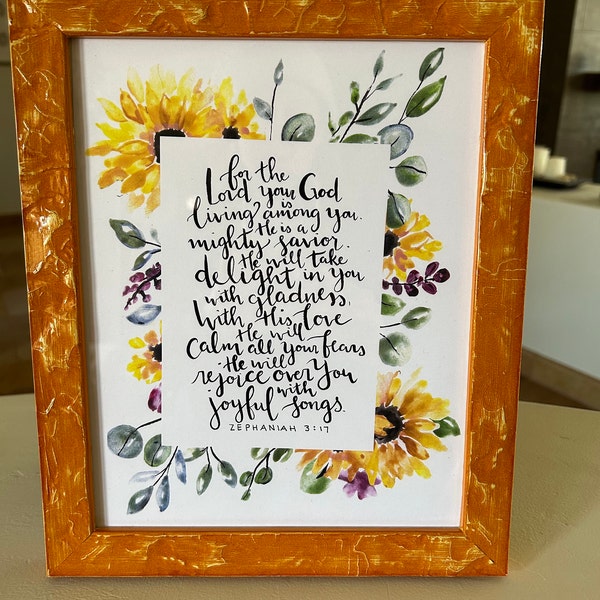 for the
Lord your God
is
living among you.
He is a
mighty savior.
He will take
delight in you
with gladness.
With His love
He will
calm all your fears
He will
rejoice over you
with
joyful songs.
ZEPHANIAH 3:17